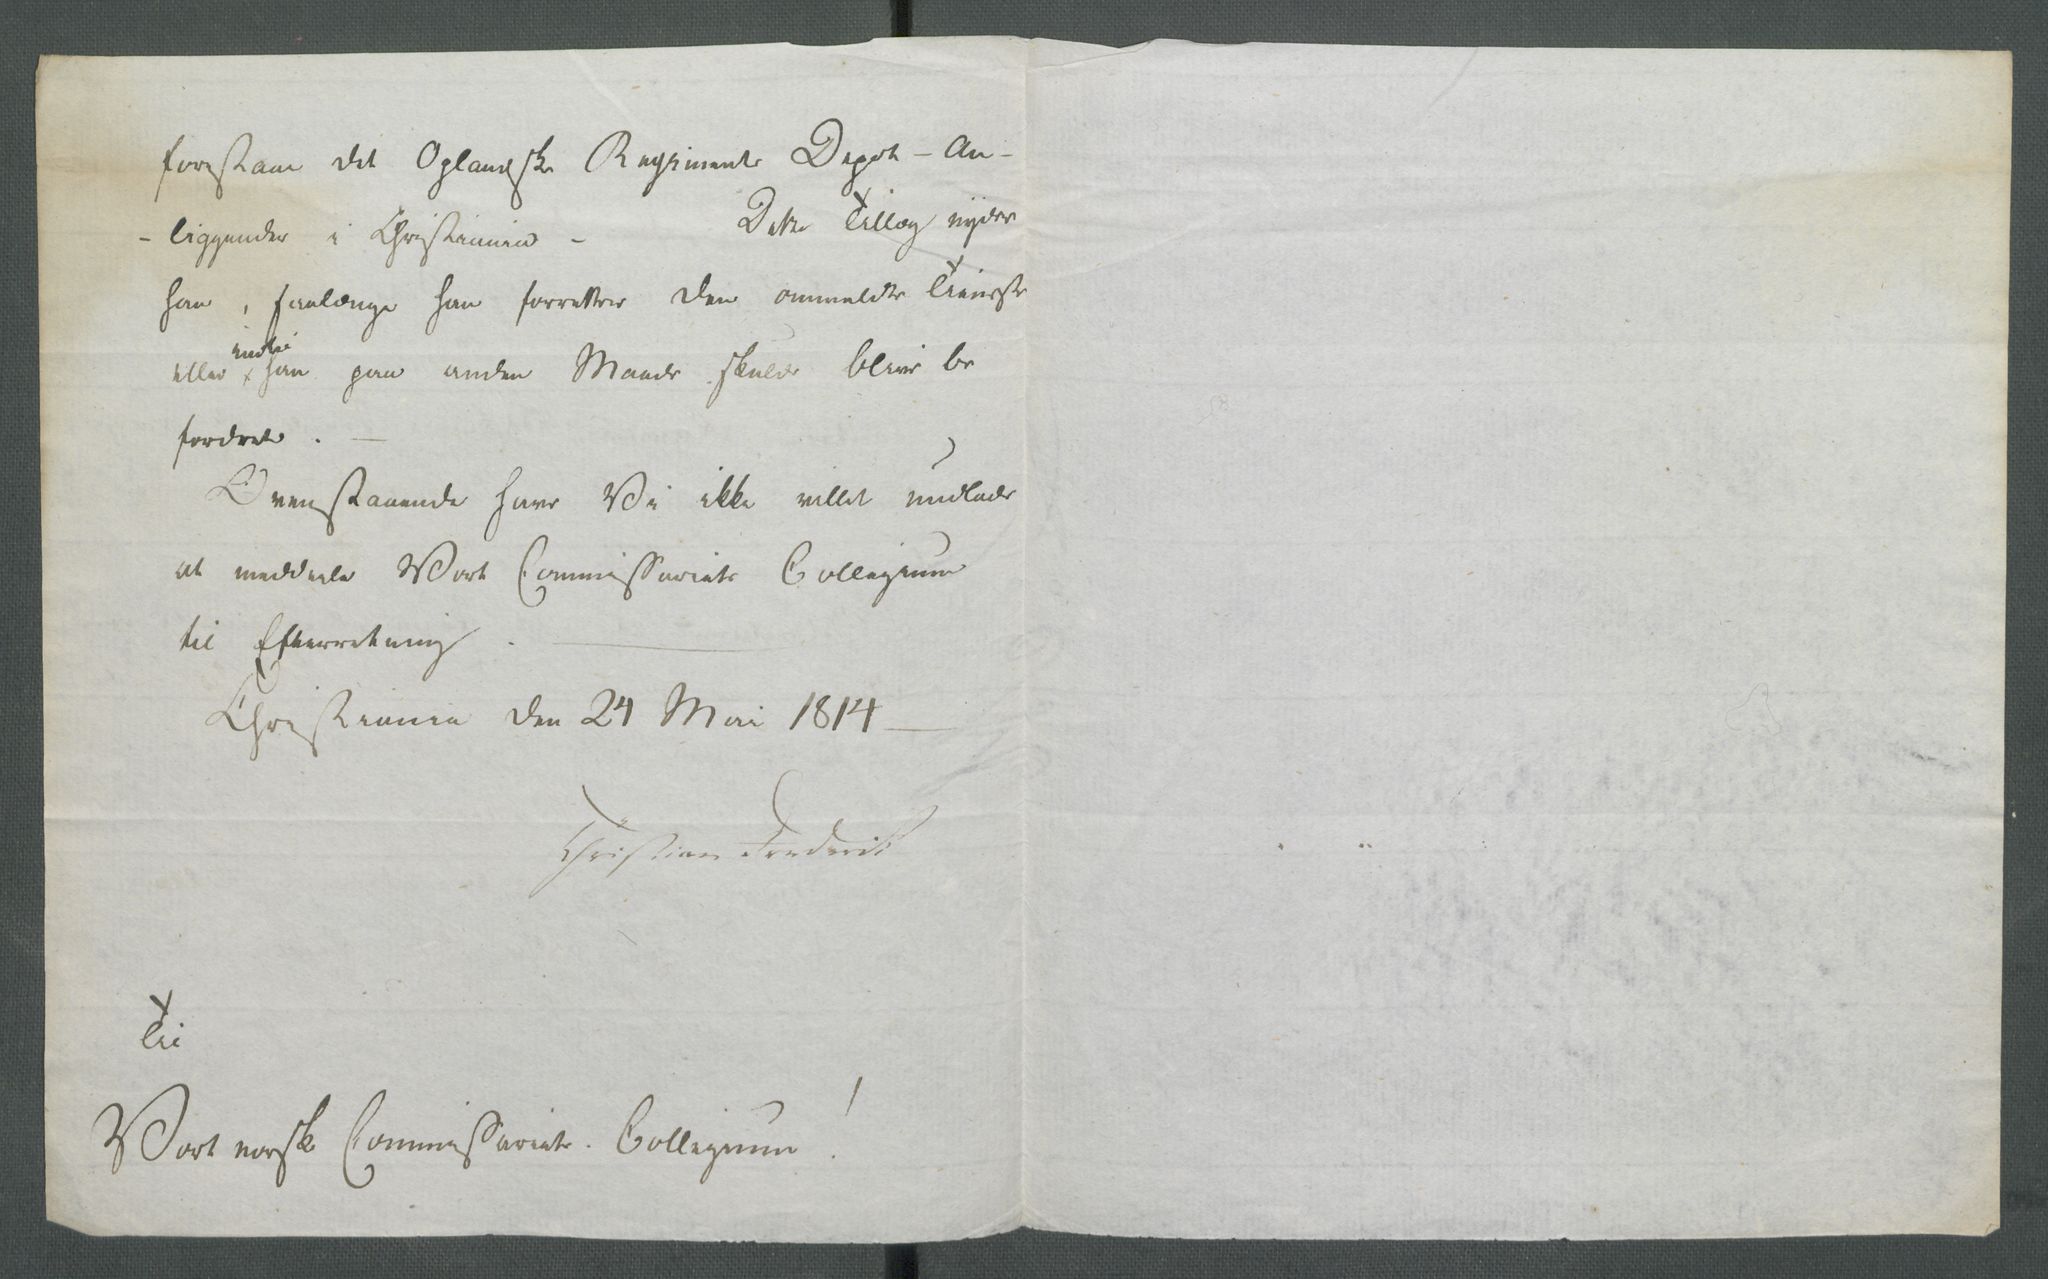 forestaae det Oplandske Regiments Depot-An-
-liggender i Christiania - Dette Tillæg nyder
han, saalænge han forretter den anmeldte Tieneste
eller indtil han paa anden Maade skulde blive be
fordret. —
Ovenstaaende have Vi ikke villet undlade
at meddeele Vort Commissariats Collegium
til Efterretning. —
Christiania den 24 Mai 1814 —
Christian Frederik
Til
Vort norske Commissariats-Collegium!